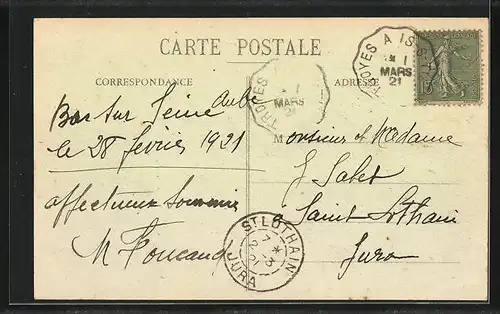 CARTE POSTALE
CORRESPONDANCE
ADRESSE
TROYES A IS
1
MARS
21
TROYES
1
MARS
21
Bar sur Seine Aube
le 28 février 1921
affectueux souvenir
M Foucaud
Monsieur et Madame
J Salet
Saint Lothain
Jura
ST LOTHAIN
7 * 3
21
JURA